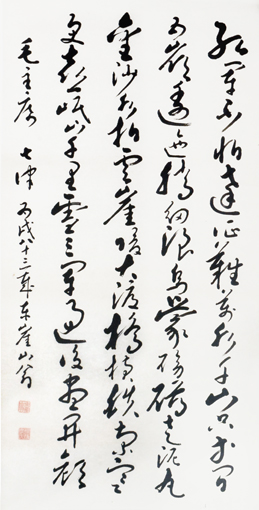 紅軍不怕遠征難萬水千山只等閒
五嶺逶迤騰細浪烏蒙磅礴走泥丸
金沙水拍雲崖暖大渡橋橫鐵索寒
更喜岷山千里雪三軍過後盡開顏
毛主席 七律 丙戌八十三 東崖山翁